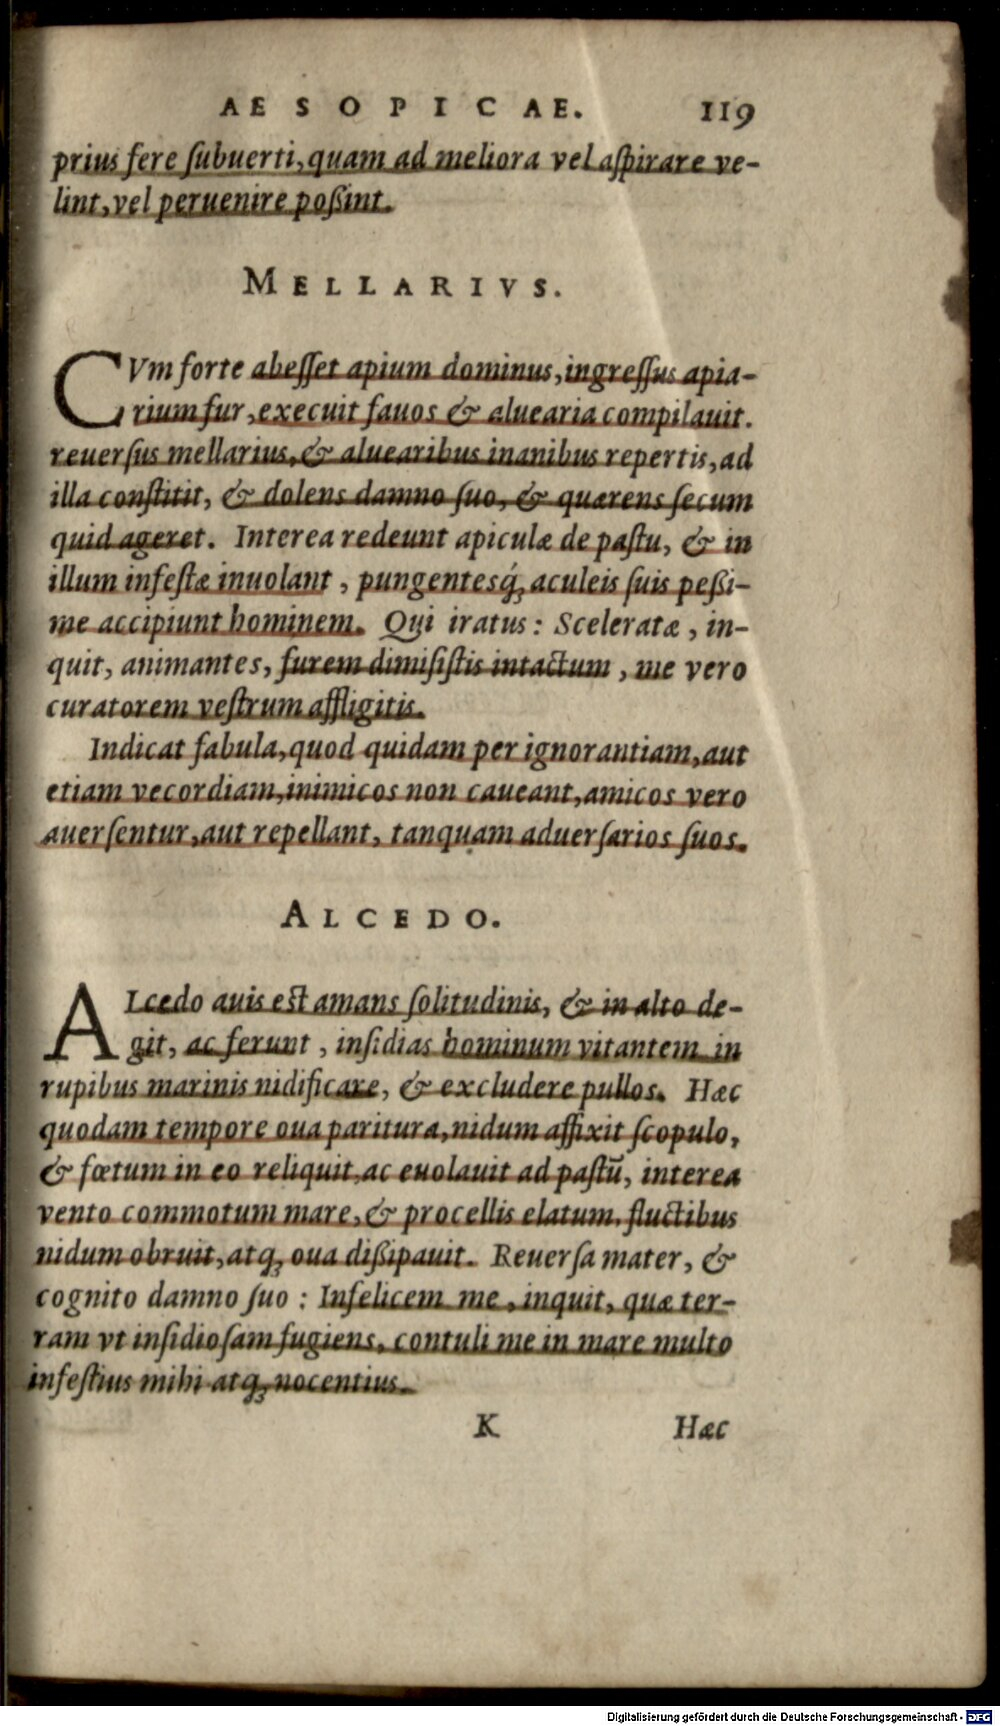 AESOPICAE. 119
prius fere ſubuerti, quam ad meliora vel aſpirare ve-
lint, vel peruenire poßint.
MELLARIVS.
CVm forte abeſſet apium dominus, ingreſſus apia-
rium fur, execuit fauos & aluearia compilauit.
reuerſus mellarius, & aluearibus inanibus repertis, ad
illa conſtitit, & dolens damno ſuo, & quærens ſecum
quid ageret. Interea redeunt apiculæ de paſtu, & in
illum infeſtæ inuolant, pungentesq́; aculeis ſuis peßi-
me accipiunt hominem. Qui iratus: Sceleratæ, in-
quit, animantes, furem dimiſiſtis intactum, me vero
curatorem veſtrum affligitis.
Indicat fabula, quod quidam per ignorantiam, aut
etiam vecordiam, inimicos non caueant, amicos vero
auerſentur, aut repellant, tanquam aduerſarios ſuos.
ALCEDO.
ALcedo auis est amans ſolitudinis, & in alto de-
git, ac ferunt, inſidias hominum vitantem in
rupibus marinis nidificare, & excludere pullos. Hæc
quodam tempore oua paritura, nidum affixit ſcopulo,
& fœtum in eo reliquit, ac euolauit ad paſtū, interea
vento commotum mare, & procellis elatum, fluctibus
nidum obruit, atq; oua dißipauit. Reuerſa mater, &
cognito damno ſuo: Infelicem me, inquit, quæ ter-
ram vt inſidioſam fugiens, contuli me in mare multo
infeſtius mihi atq; nocentius.
K Hæc
Digitalisierung gefördert durch die Deutsche Forschungsgemeinschaft - DFG